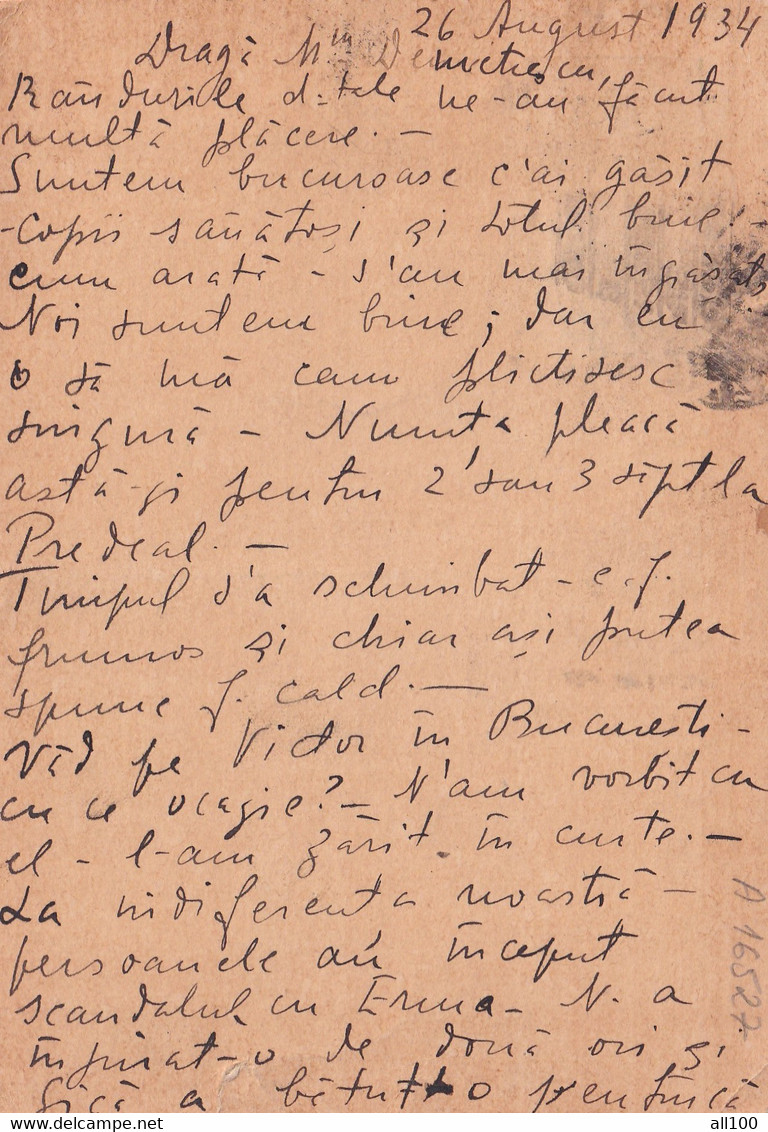 26 August 1934
Dragă Mme Demetrescu,
Rândurile d-tale ne-au făcut
multă plăcere. —
Suntem bucuroase c'ai găsit
-copii sănătoși și totul bine! -
cum arată - s'au mai îngrășat,
Noi suntem bine; dar eu
o să mă cam plictisesc
singură - Nunuța pleacă
astă-zi pentru 2 sau 3 sept la
Predeal. —
Timpul s'a schimbat - e f.
frumos și chiar ași putea
spune f. cald. —
Văd pe Victor în București -
cu ce ocazie? - N'am vorbit cu
el - l-am zărit în curte. —
La indiferența noastră -
persoanele au început
scandalul cu Erna - N. a
înjurat-o de două ori și
a bătut-o pentrucă
A 16527
all100